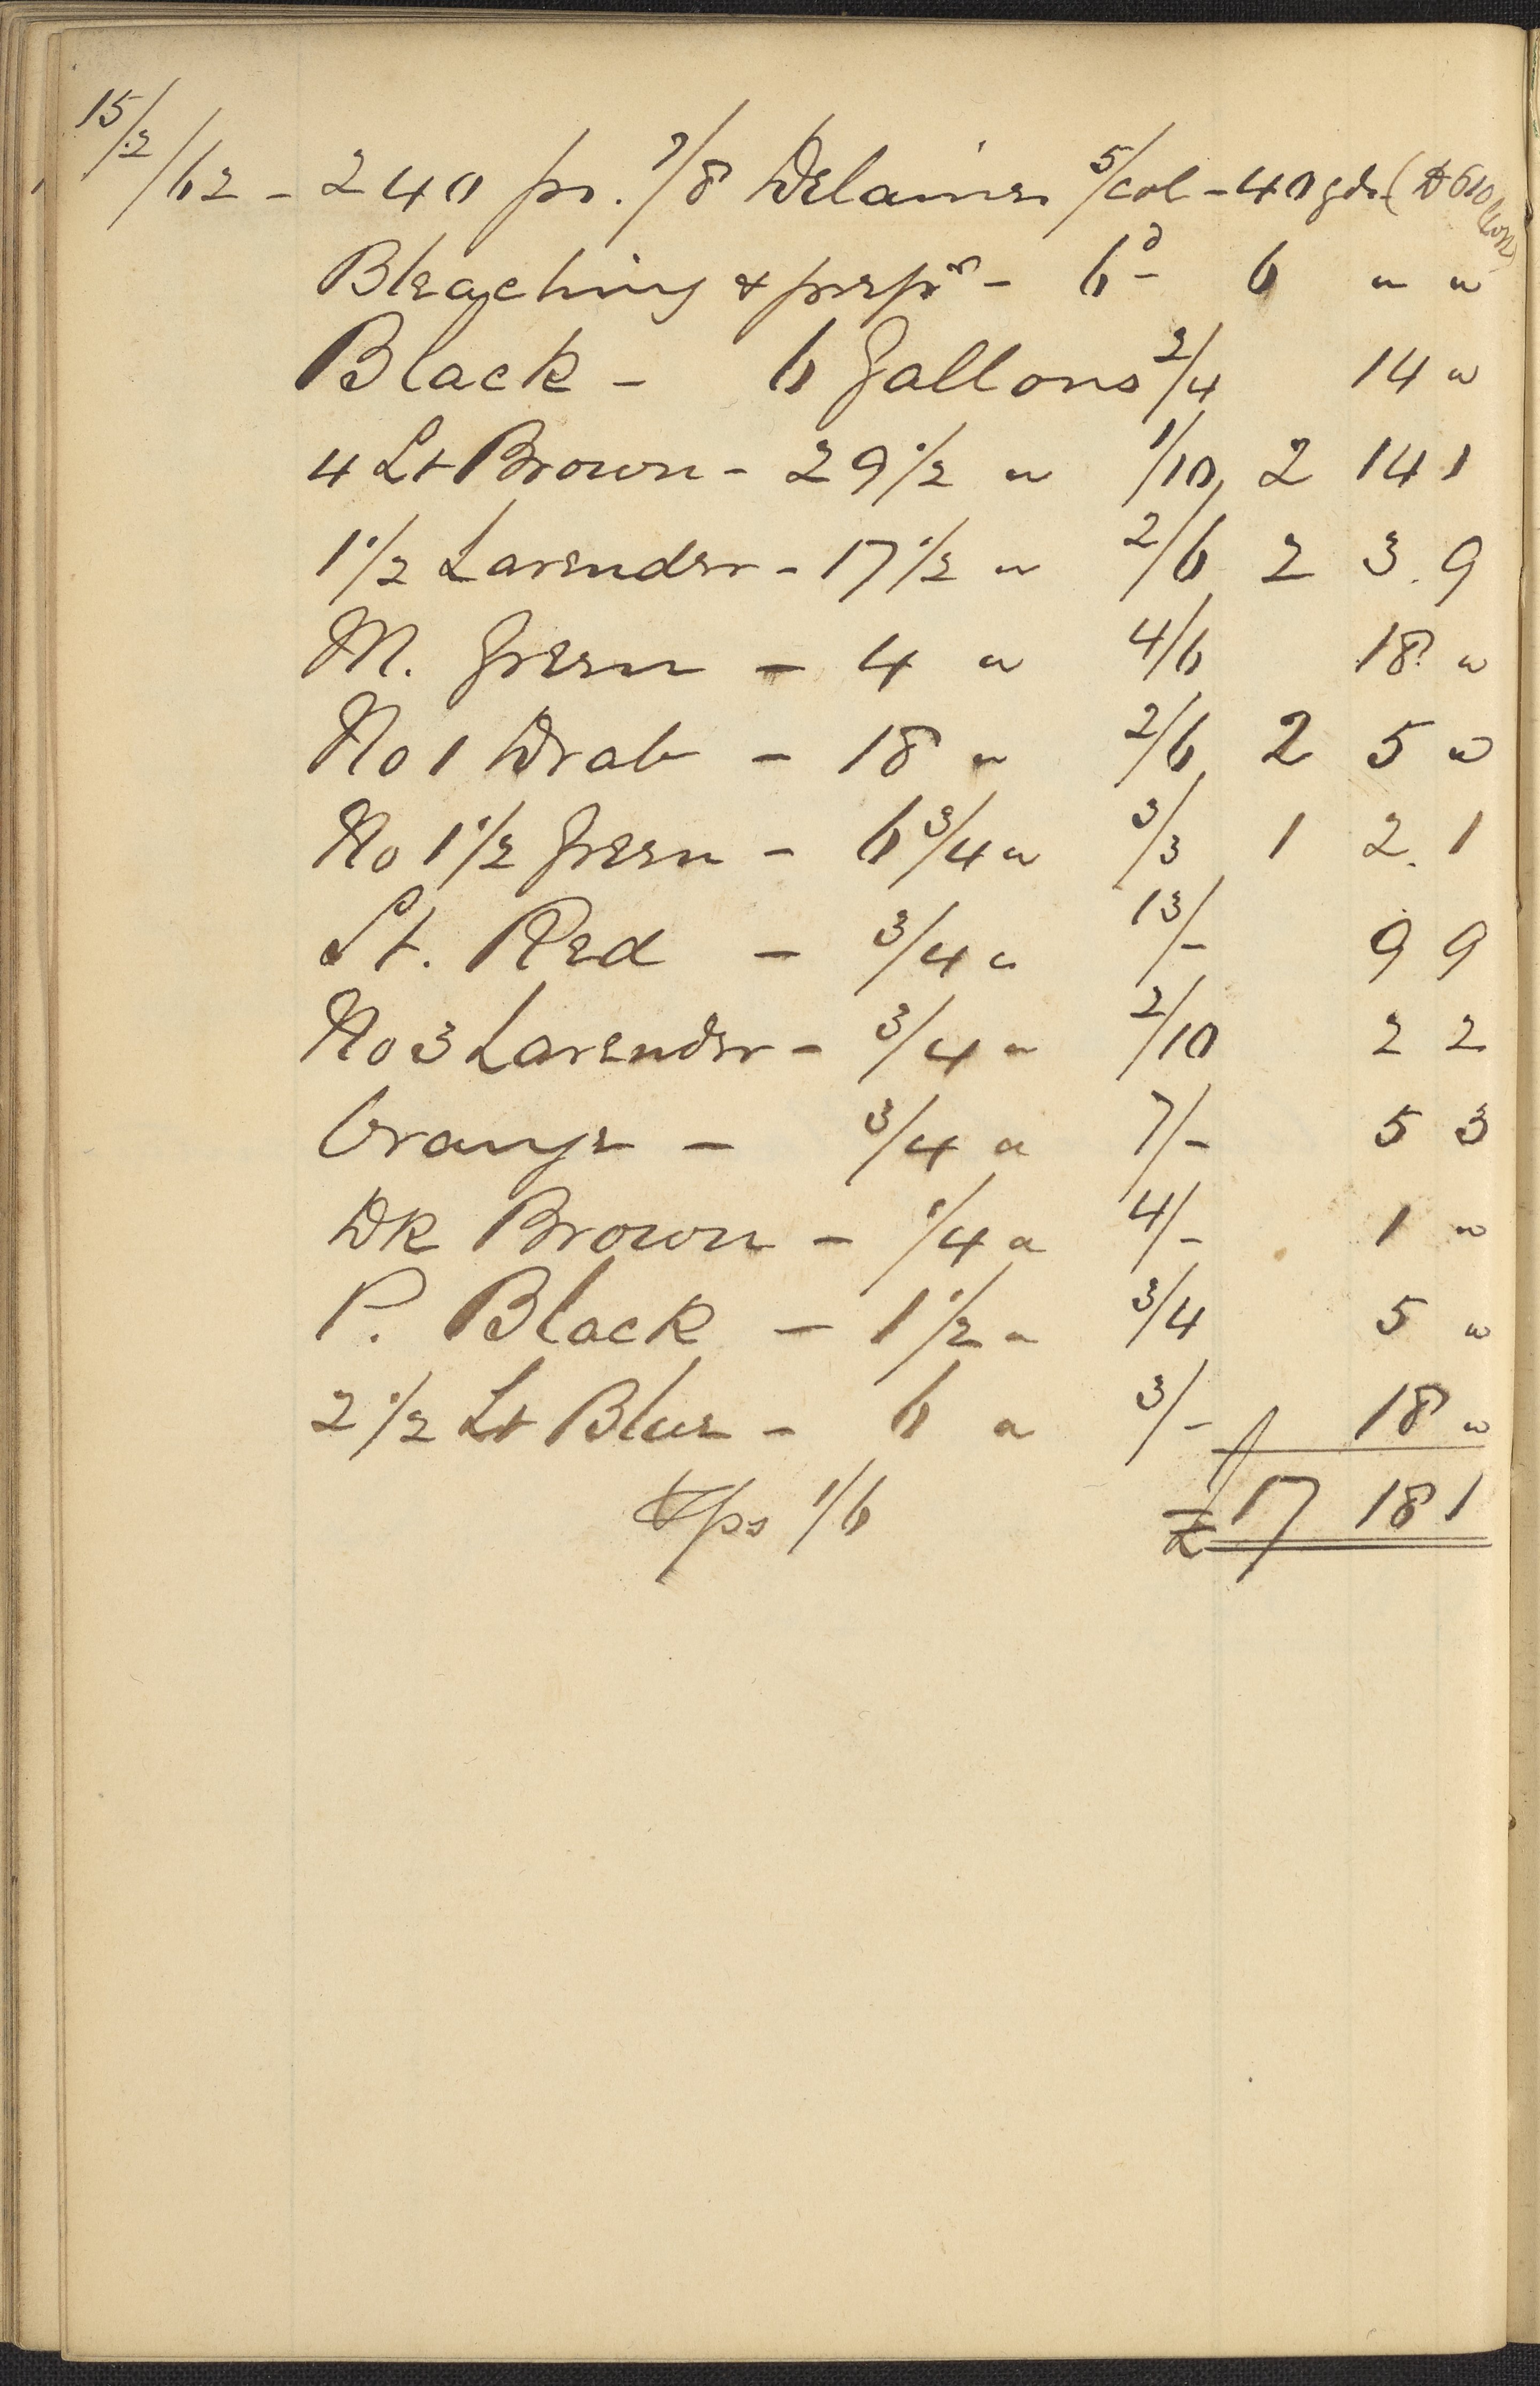 15/2/62 - 240 ps. 7/8 Delaines 5/col - 40 yds (D 610
Bleaching & prepn - 6d - 6 " "
Black - 6 Gallons 2/4 14 "
4 Lt Brown - 29 1/2 " 1/10 2 14 1
1 1/2 Lavender - 17 1/2 " 2/6 2 3. 9
M. Green - 4 " 4/6 18 "
No 1 Drab - 18 " 2/6 2 5 "
No 1 1/2 Green - 6 3/4 " 3/3 1 2. 1
Lt. Red - 3/4 " 13/- 9 9
No 3 Lavender - 3/4 " 2/10 2 2
Orange - 3/4 " 7/- 5 3
Dk Brown - 1/4 " 4/- 1 "
P. Black - 1 1/2 " 3/4 5 "
2 1/2 Lt Blue - 6 " 3/- 18 "
1/6 £ 17 18 1